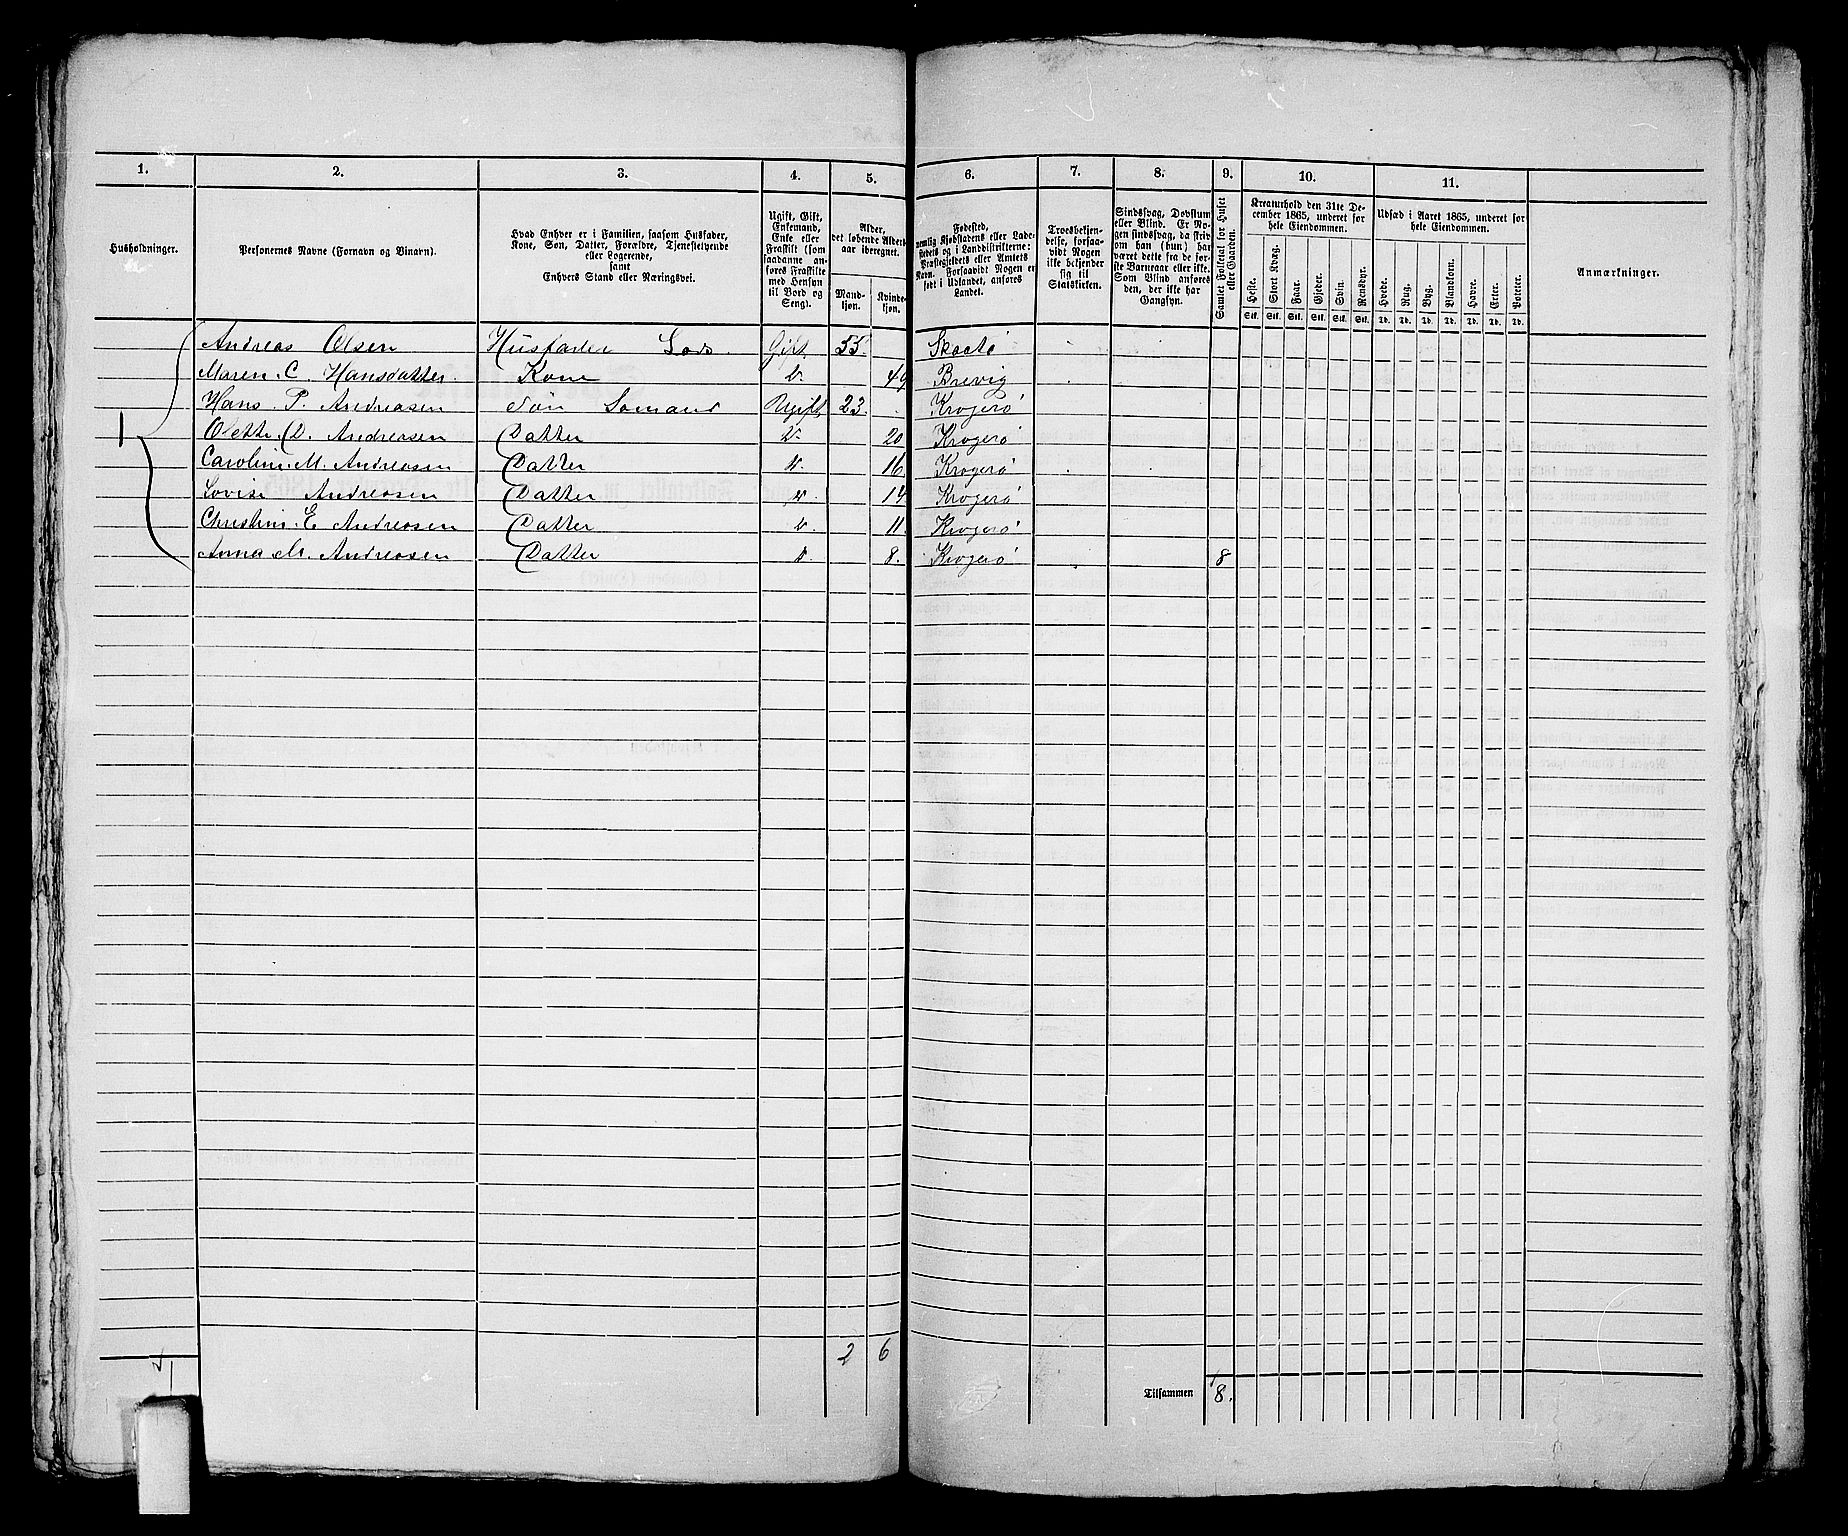 1. 2. 3. 4. 5. 6. 7. 8. 9. 10. 11.
Husholdninger.
Personernes Navne (Fornavn og Binavn).
Hvad Enhver er i Familien, saasom Husfader, Kone, Søn, Datter, Forældre, Tjenestetyende eller Logerende, samt Enhvers Stand eller Næringsvei.
Ugift, Gift, Enkemand, Enke eller Fraskilt (som saadanne anføres Fraskilte med Hensyn til Bord og Seng).
Alder, det løbende Alders aar iberegnet.
Mandkjøn. Kvindekjøn.
Fødested, nemlig Kjøbstadens eller Ladestedets og i Landdistrikterne: Præstegjeldets eller Amtets Navn. Forsaavidt Nogen er født i Udlandet, anføres Landet.
Troesbekjendelse, forsaavidt Nogen ikke bekjender sig til Statskirken.
Sindssvag, Døvstum eller Blind. Er Nogen sindssvag, da skrives om han (hun) har været dette fra de første Barneaar eller ikke. Som Blind anføres den, der ikke har Gangsyn.
Samlet Folketal for Huset eller Gaarden.
Kreaturhold den 31te December 1865, underet for hele Eiendommen.
Heste. Stort Kvæg. Faar. Gjeder. Svin. Rensdyr.
Stk. Stk. Stk. Stk. Stk. Stk.
Udsæd i Aaret 1865, underet for hele Eiendommen.
Hvede. Rug. Byg. Blandkorn. Havre. Erter. Poteter.
Td. Td. Td. Td. Td. Td. Td.
Anmærkninger.
Andreas Olsen Husfader Lods Gift 55 Skaatø
Maren C. Hansdatter Kone 49 Brevig
Hans P. Andreasen Søn Sømand Ugift 23 Kragerø
1 Andreasen Datter 20 Kragerø
Caroline M. Andreasen Datter 16 Kragerø
Lovise Andreasen Datter 14 Kragerø
Christine E. Andreasen Datter 11 Kragerø
Anna M. Andreasen Datter 8. Kragerø 8
2 6
1
Tilsammen 8.